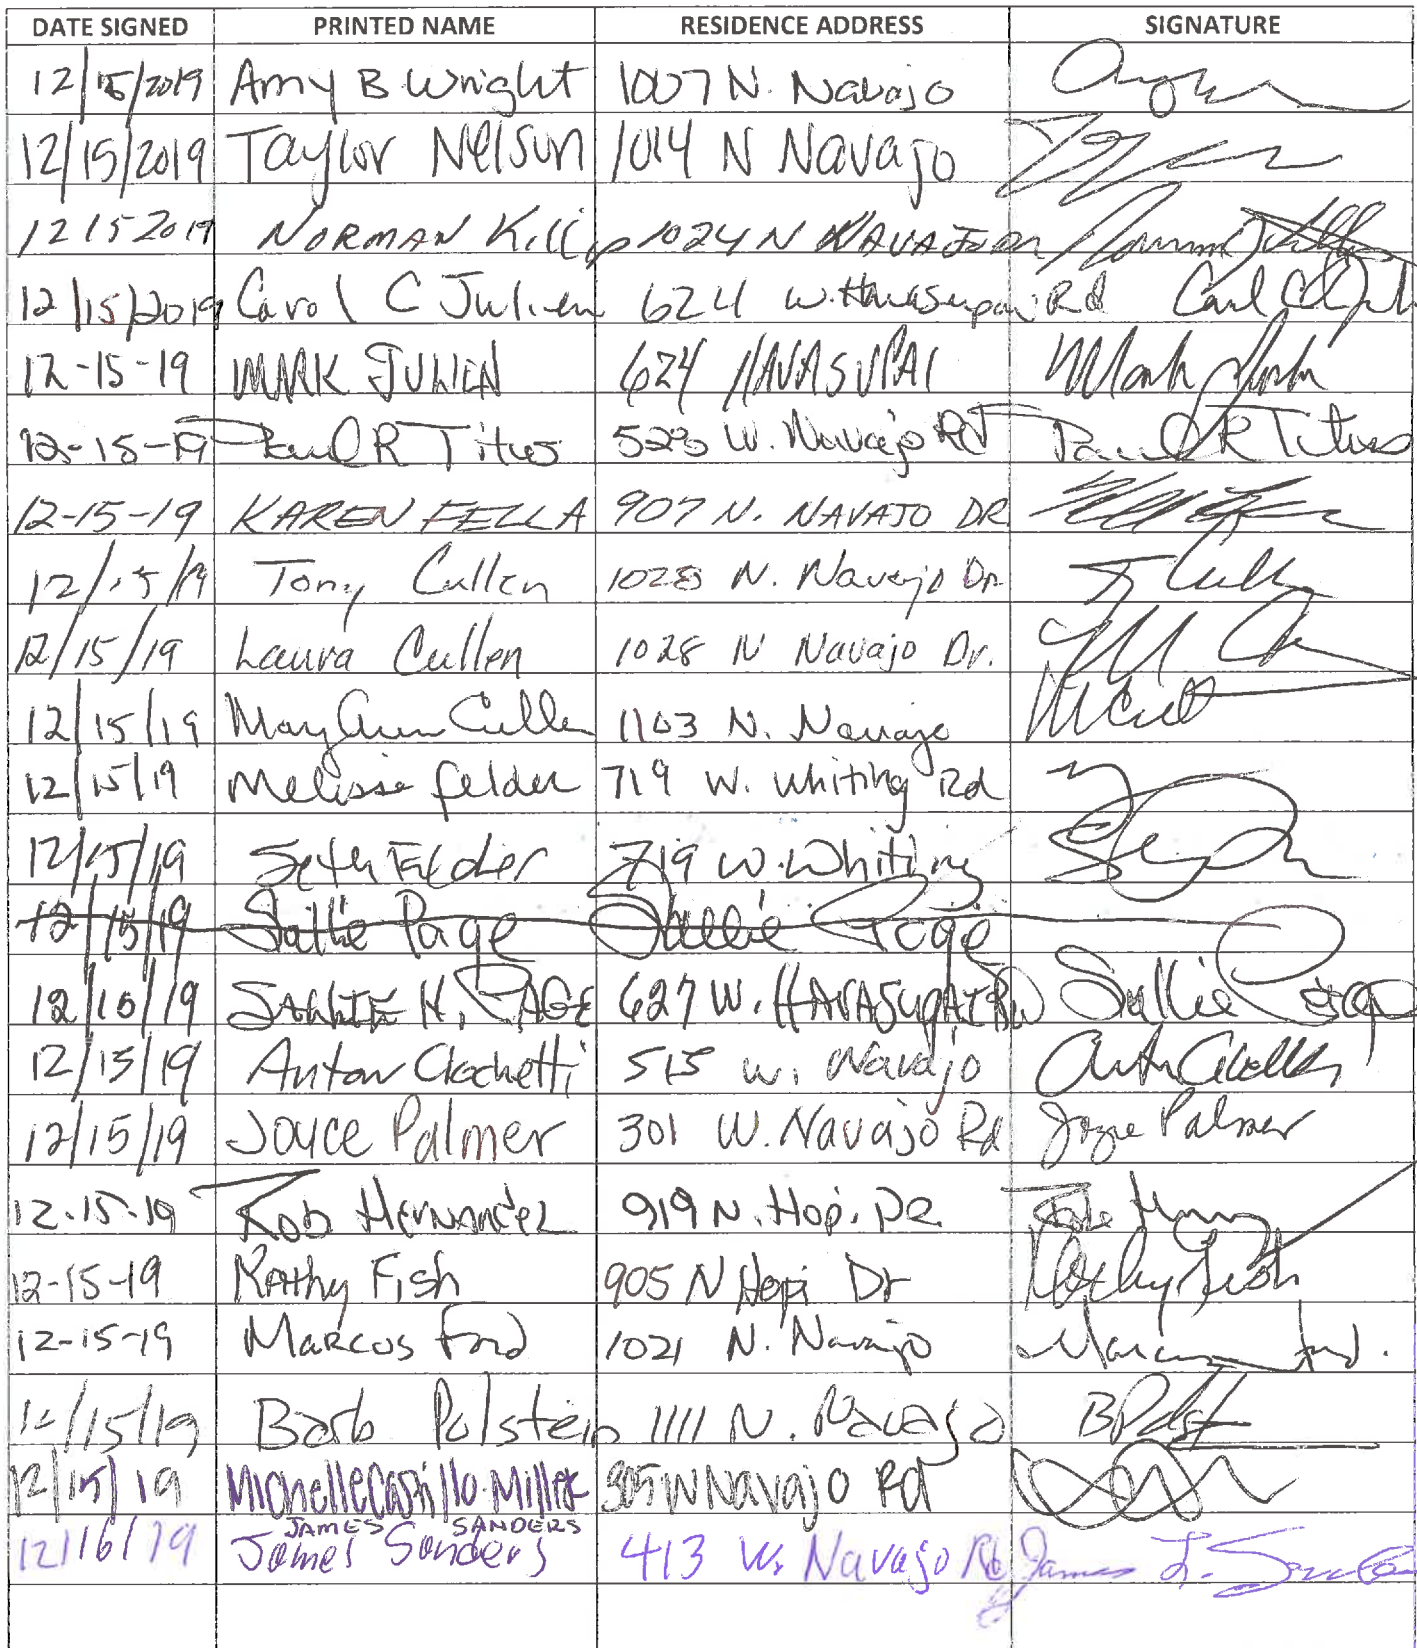 DATE SIGNED PRINTED NAME RESIDENCE ADDRESS SIGNATURE
12/15/2019 Amy B Wright 1007 N. Navajo
12/15/2019 Taylor Nelson 1014 N Navajo
12 15 2019 NORMAN Killip 1024 N NAVAJO DR
12/15/2019 Carol C Julien 624 W. Havasupai Rd
12-15-19 MARK JULIEN 624 HAVASUPAI Mark
12-15-19 Paul R Titus 523 W. Navajo RD Paul R Titus
12-15-19 KAREN FELLA 907 N. NAVAJO DR
12/15/19 Tony Cullen 1028 N. Navajo Dr. T Cullen
12/15/19 Laura Cullen 1028 N Navajo Dr.
12/15/19 Mary Ann Cullen 1103 N. Navajo
12/15/19 Melissa Felder 719 W. Whiting Rd
12/15/19 Seth Felder 719 W. Whiting
12/15/19 Sallie Page Sallie Page
12/15/19 SALLIE H. PAGE 627 W. HAVASUPAI RD Sallie Page
12/15/19 Anton 515 W. Navajo
12/15/19 Joyce Palmer 301 W. Navajo Rd Joyce Palmer
12-15-19 Rob Hernandez 919 N. Hopi DR.
12-15-19 Kathy Fish 905 N Hopi Dr Kathy Fish
12-15-19 Marcus Ford 1021 N. Navajo Marcus Ford.
12/15/19 Barb Polstein 1111 N. Navajo
12/15/19 Michelle Castillo-Miller 305 W Navajo Rd
JAMES SANDERS
12/16/19 James Sanders 413 W. Navajo Rd James L. Sanders